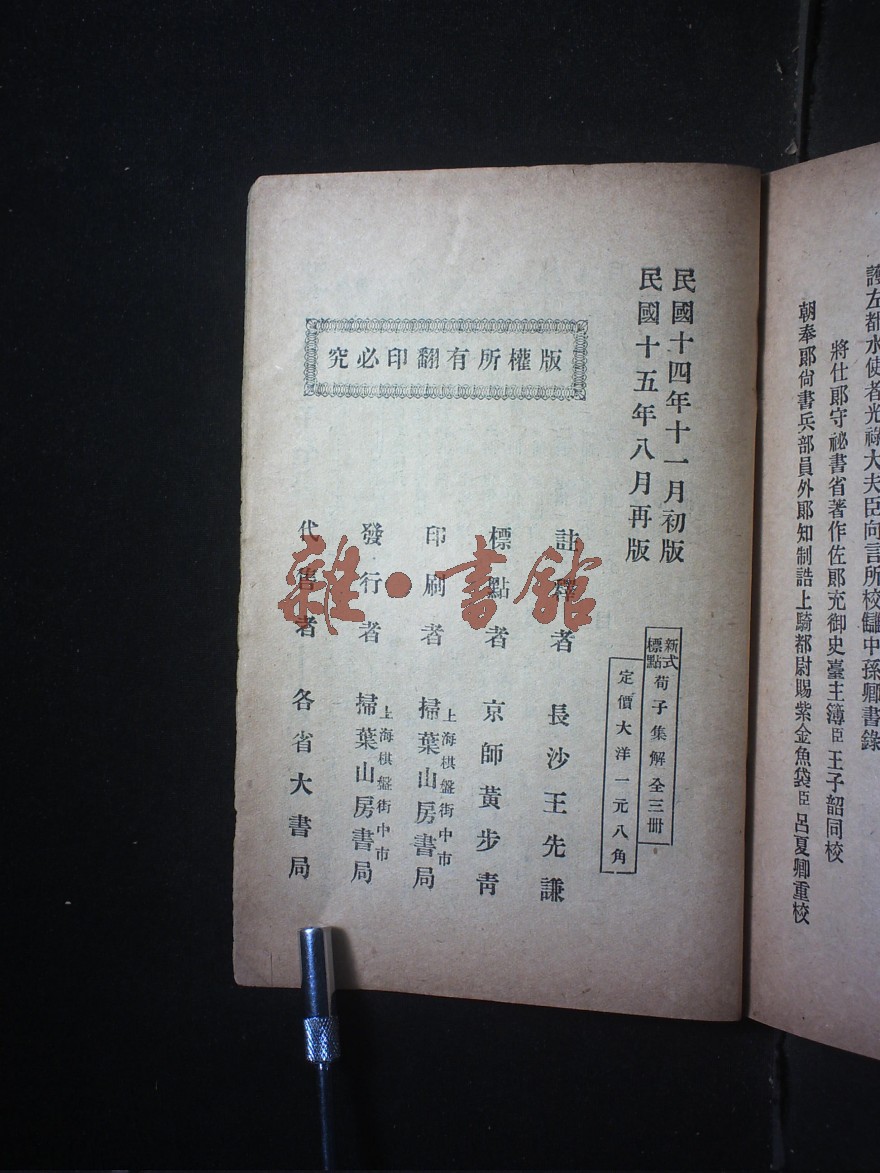 護左都水使者光祿大夫臣向言所校讎中孫卿書錄
將仕郎守祕書省著作佐郎充御史臺主簿臣王子韶同校
朝奉郎尙書兵部員外郎知制誥上騎都尉賜紫金魚袋臣呂夏卿重校
民國十四年十一月初版
民國十五年八月再版
新式標點荀子集解全三冊
定價大洋一元八角
版權所有翻印必究
註釋者 長沙王先謙
標點者 京師黃步靑
印刷者 上海棋盤街中市掃葉山房書局
發行者 上海棋盤街中市掃葉山房書局
代售者 各省大書局
雜·書館